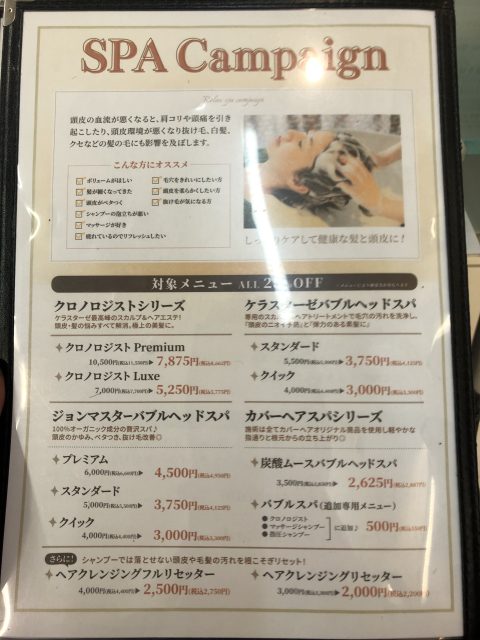 SPA Campaign
Relax spa campaign
頭皮の血流が悪くなると、肩コリや頭痛を引き
起こしたり、頭皮環境が悪くなり抜け毛、白髪、
クセなどの髪の毛にも影響を及ぼします。
こんな方にオススメ
ボリュームがほしい
髪が細くなってきた
頭皮がベタつく
シャンプーの泡立ちが悪い
マッサージが好き
疲れているのでリフレッシュしたい
毛穴をきれいにしたい方
頭皮を柔らかくしたい方
抜け毛が気になる方
しっかりケアして健康な髪と頭皮に!
対象メニュー ALL 25%OFF
クロノロジストシリーズ
ケラスターゼ最高峰のスカルプ&ヘアエステ!
頭皮・髪の悩みすべて解消。極上の美髪に。
クロノロジスト Premium
10,500円(税込11,550円)▶ 7,875円(税込8,662円)
クロノロジスト Luxe
7,000円(税込7,700円)▶ 5,250円(税込5,775円)
ケラスターゼバブルヘッドスパ
専用のスカルプ&ヘアトリートメントで毛穴の汚れを洗浄し、
「頭皮のニオイ予防」と「弾力のある素髪に」
スタンダード
5,000円(税込5,500円)▶ 3,750円(税込4,125円)
クイック
4,000円(税込4,400円)▶ 3,000円(税込3,300円)
ジョンマスターバブルヘッドスパ
100%オーガニック成分の贅沢スパ♪
頭皮のかゆみ、ベタつき、抜け毛改善◎
プレミアム
6,000円(税込6,600円)▶ 4,500円(税込4,950円)
スタンダード
5,000円(税込5,500円)▶ 3,750円(税込4,125円)
クイック
4,000円(税込4,400円)▶ 3,000円(税込3,300円)
カバーヘアスパシリーズ
施術は全てカバーヘアオリジナル商品を使用し軽やかな
指通りと根元からの立ち上がり◎
炭酸ムースバブルヘッドスパ
3,500円(税込3,850円)▶ 2,625円(税込2,887円)
バブルスパ(追加専用メニュー)
● クロノロジスト
● マッサージシャンプー
● 指圧シャンプー
に追加♪ 500円(税込550円)
さらに! シャンプーでは落とせない頭皮や毛髪の汚れを根こそぎリセット!
ヘアクレンジングフルリセッター
4,000円(税込4,400円)▶ 2,500円(税込2,750円)
ヘアクレンジングリセッター
3,000円(税込3,300円)▶ 2,000円(税込2,200円)